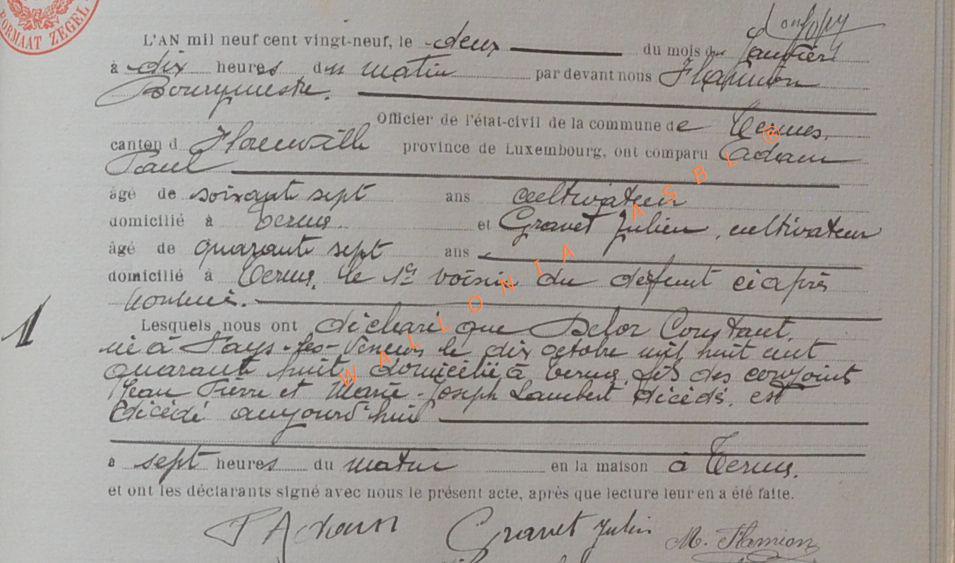 FORMAAT ZEGEL
L'AN mil neuf cent vingt-neuf, le deux du mois de Janvier
à dix heures du matin par devant nous Flamion
Bourgmestre.
Officier de l'état-civil de la commune de Termes,
canton d Florenville province de Luxembourg, ont comparu Adam
Paul
âgé de soixant sept ans cultivateur
domicilié à Termes et Gravet Julien, cultivateur
âgé de quarant sept ans
domicilié à Termes, le 1er voisin du défunt ci après
nommé.
1
Lesquels nous ont déclaré que Constant,
né à le dix octobre mil huit cent
quarant huit, domicilié à Termes, fils des conjoints
Jean Pierre et Marie-Joseph Lambert décédés, est
décédé aujourd'hui
à sept heures du matin en la maison à Termes.
et ont les déclarants signé avec nous le présent acte, après que lecture leur en a été faite.
P Adam Gravet Julien M. Flamion
WALLONIA ASBL ©